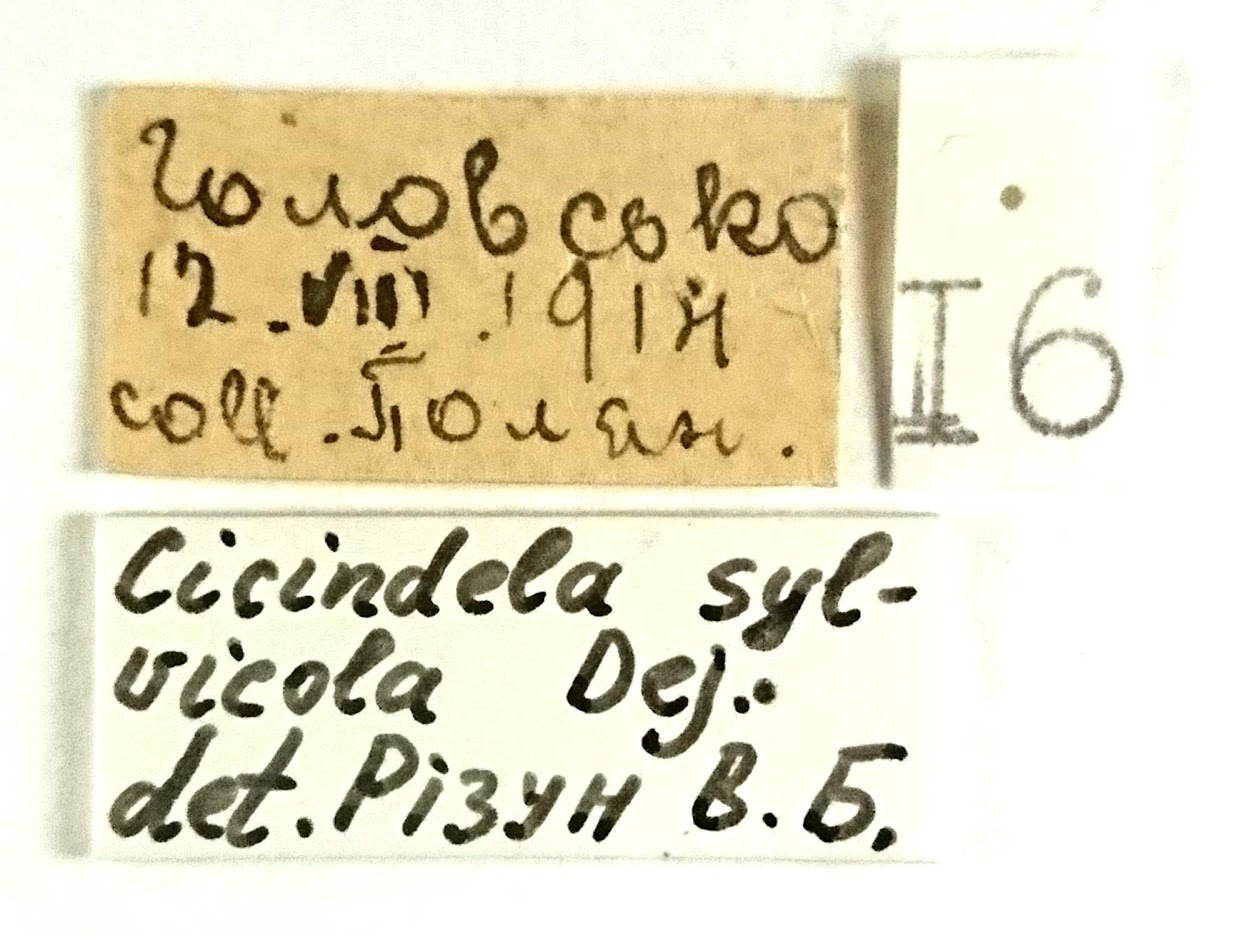 Головсько
12.VIII.1914
coll. Полян.
I6
Cicindela syl-
vicola Dej.
det. Різун В. Б.